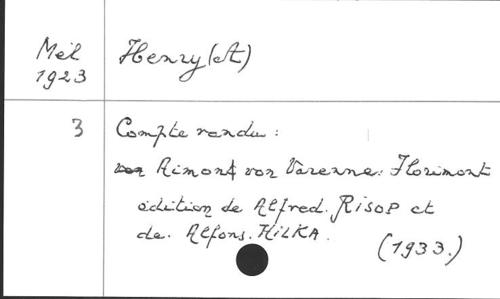 Mél
1923
Henry (A)
3
Compte rendu :
Aimont von Varenne : Florimont
édition de Alfred. RISOP et
de. Alfons. HILKA.
(1933.)